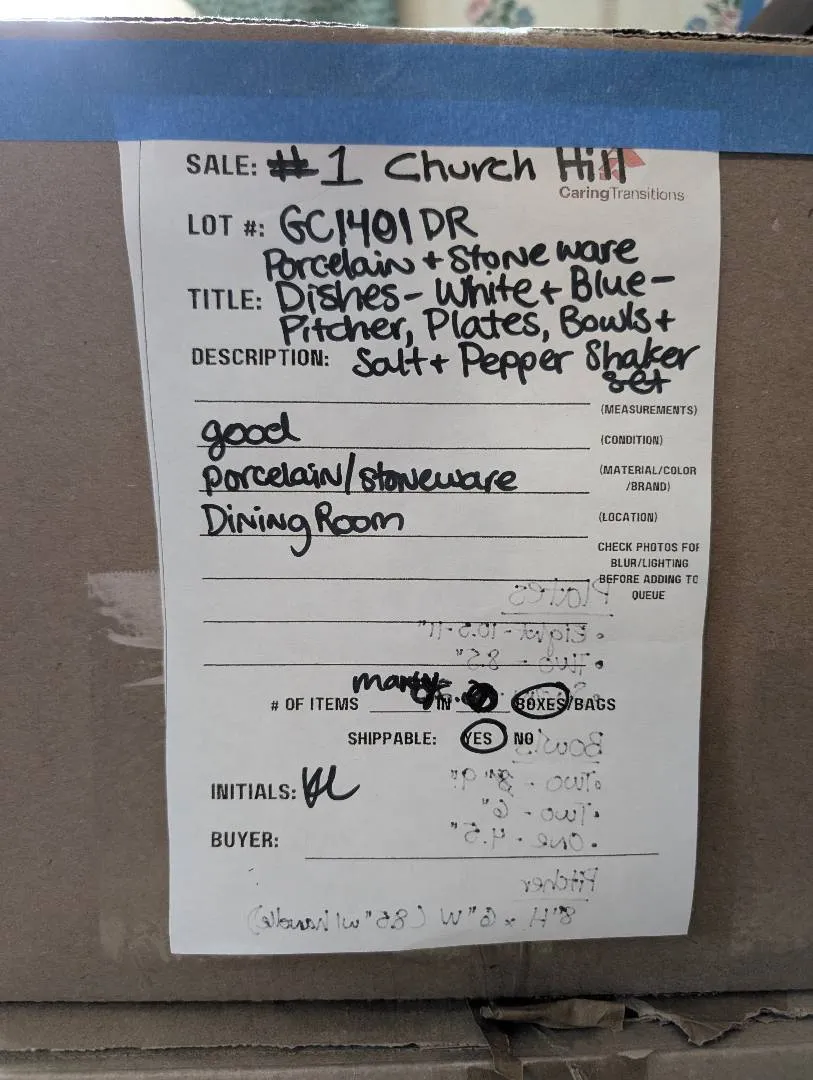 SALE: #1 Church Hill
CaringTransitions
LOT #: GC1401DR
Porcelain + Stoneware
TITLE: Dishes - White + Blue -
Pitcher, Plates, Bowls +
DESCRIPTION: Salt + Pepper Shaker
set
(MEASUREMENTS)
good (CONDITION)
porcelain/stoneware (MATERIAL/COLOR
/BRAND)
Dining Room (LOCATION)
CHECK PHOTOS FOR
BLUR/LIGHTING
BEFORE ADDING TO
QUEUE
Plates
• Eight - 10.5-11"
• Two - 8.5"
# OF ITEMS many IN BOXES/BAGS
SHIPPABLE: YES NO
Bowls
• Two - 8" 9"
INITIALS:
• Two - 6"
BUYER:
• One - 4.5"
Pitcher
8"H x 6"W (8.5" w/handle)